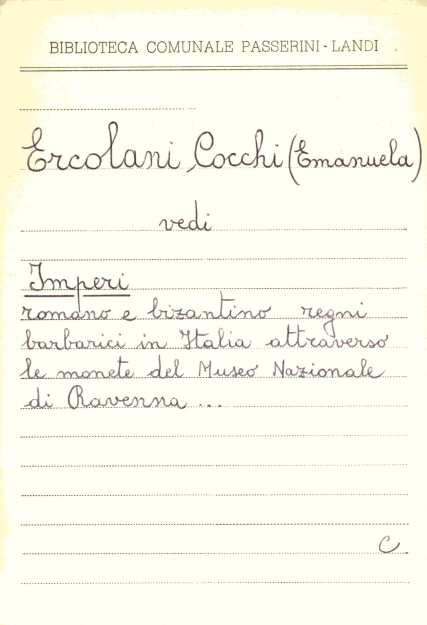 BIBLIOTECA COMUNALE PASSERINI - LANDI
Ercolani Cocchi (Emanuela)
vedi
Imperi
romano e bizantino regni
barbarici in Italia attraverso
le monete del Museo Nazionale
di Ravenna ...
C